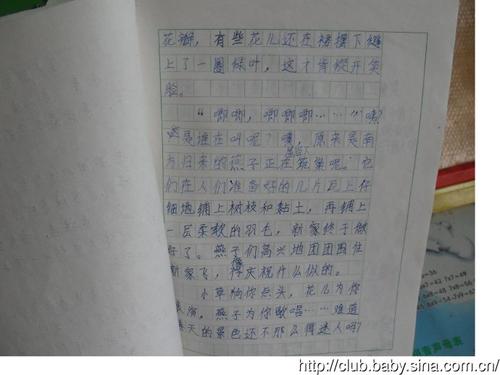 花瓣，有些花儿还在裙摆下缝
上了一圈绿叶，这才肯绽开笑
脸。
“唧唧，唧唧唧……”咦？
是谁在叫呢？噢，原来是南
方归来的燕子正在筑巢呢。它
们在人们准备好的几片瓦上仔
细地铺上树枝和黏土，再铺上
一层柔软的羽毛，新家终于做
好了。燕子们高兴地团团围住
新家飞，像在庆祝什么似的。
小草向你点头，花儿为你
，燕子为你歌唱……难道
春天的景色还不那么得迷人吗？
http://club.baby.sina.com.cn/